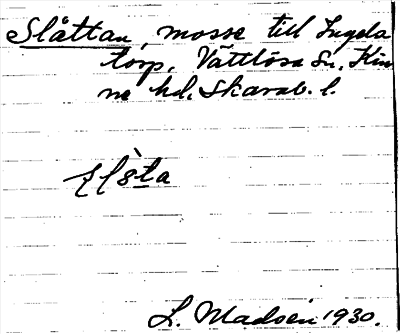 Slåttan, mosse till Ingels
torp, Vättlösa Sn, Kin
ne hd. Skarab. l.
L. Madsen 1930.